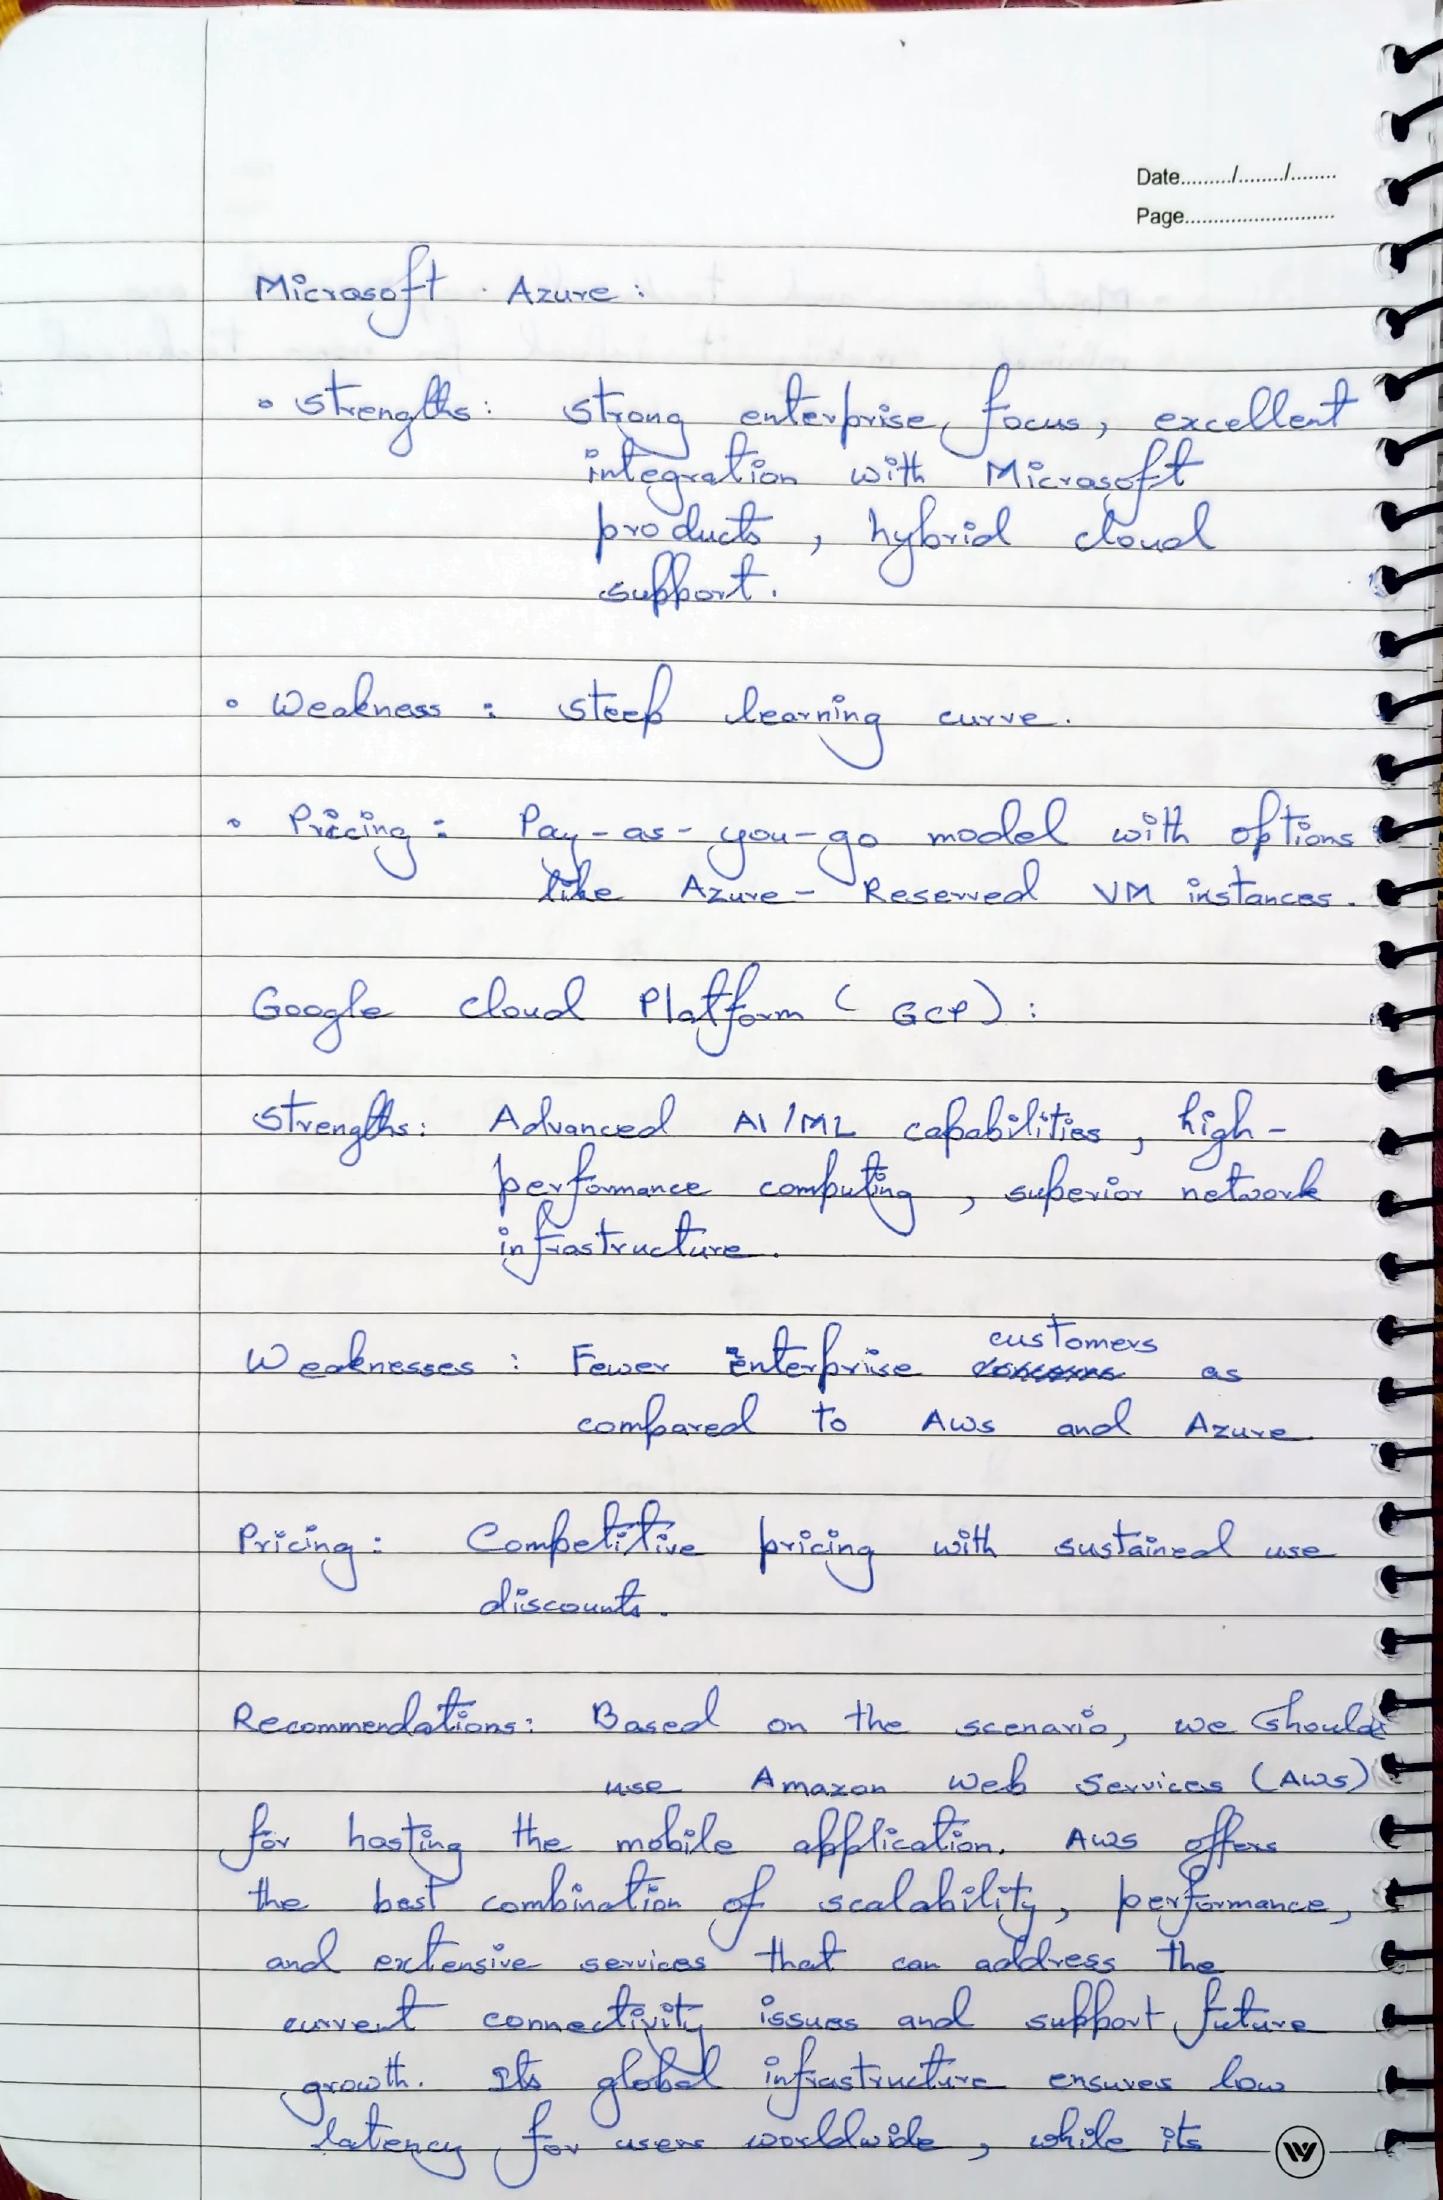 Date........./......../........
Page............................
Microsoft Azure:
• Strengths: strong enterprise, focus, excellent
integration with Microsoft
products, hybrid cloud
support.
• Weakness: steep learning curve.
• Pricing: Pay-as-you-go model with options
like Azure-Reserved VM instances.
Google Cloud Platform (GCP):
Strengths: Advanced AI/ML capabilities, high-
performance computing, superior network
infrastructure.
customers
Weaknesses: Fewer enterprise as
compared to AWS and Azure
Pricing: Competitive pricing with sustained use
discounts.
Recommendations: Based on the scenario, we should
use Amazon Web Services (AWS)
for hosting the mobile application. AWS offers
the best combination of scalability, performance,
and extensive services that can address the
current connectivity issues and support future
growth. Its global infrastructure ensures low
latency for users worldwide, while its
W